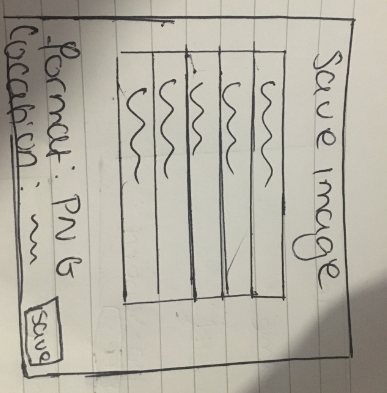 Save image
format: PNG
Location:
save